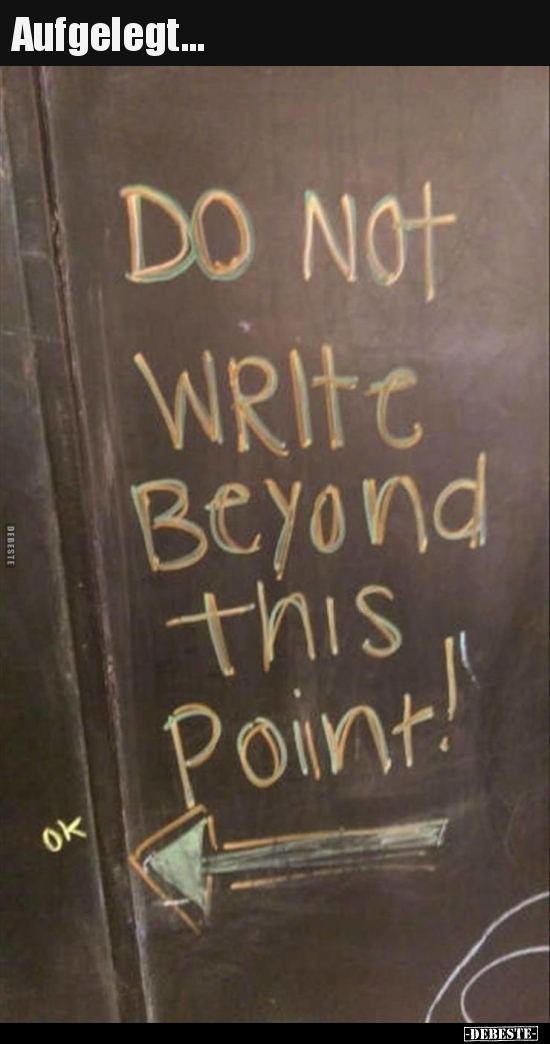 Aufgelegt...
DO NOt
WRIte
Beyond
this
Point!
OK
DEBESTE
-DEBESTE-